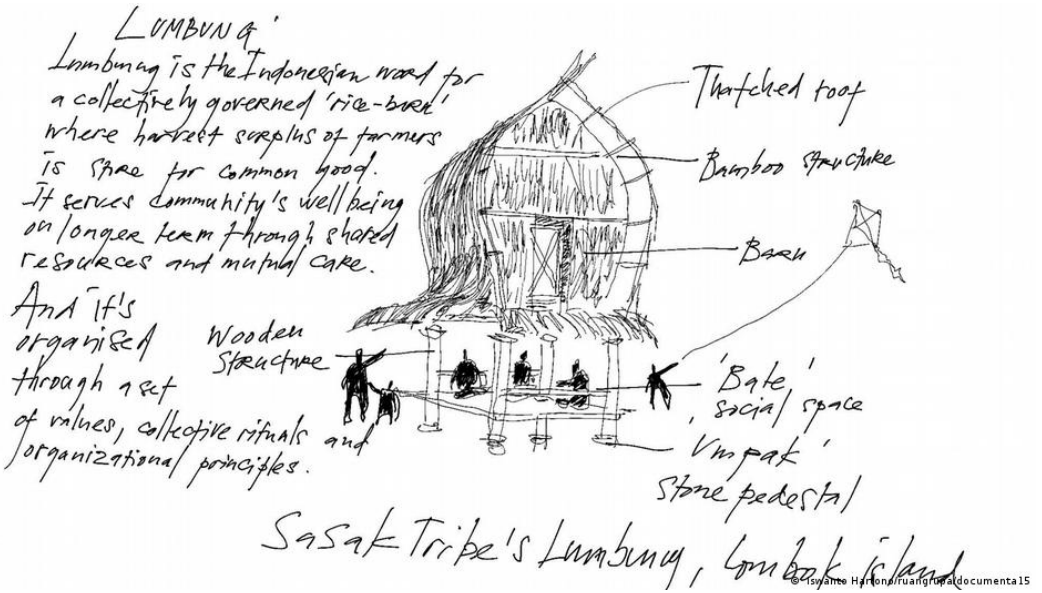 'LUMBUNG'
Lumbung is the Indonesian word for
a collectively governed 'rice-barn'
where harvest surplus of farmers
is store for common good.
It serves community's well being
on longer term through shared
resources and mutual care.
And it's
organised
through a set
of values, collective rituals and
organizational principles.
Thatched roof
Bamboo structure
Barn
Wooden
Structure
'Bale',
social space
'Umpak'
stone pedestal
Sasak Tribe's Lumbung, Lombok island
© Iswanto Hartono/ruangrupa/documenta15